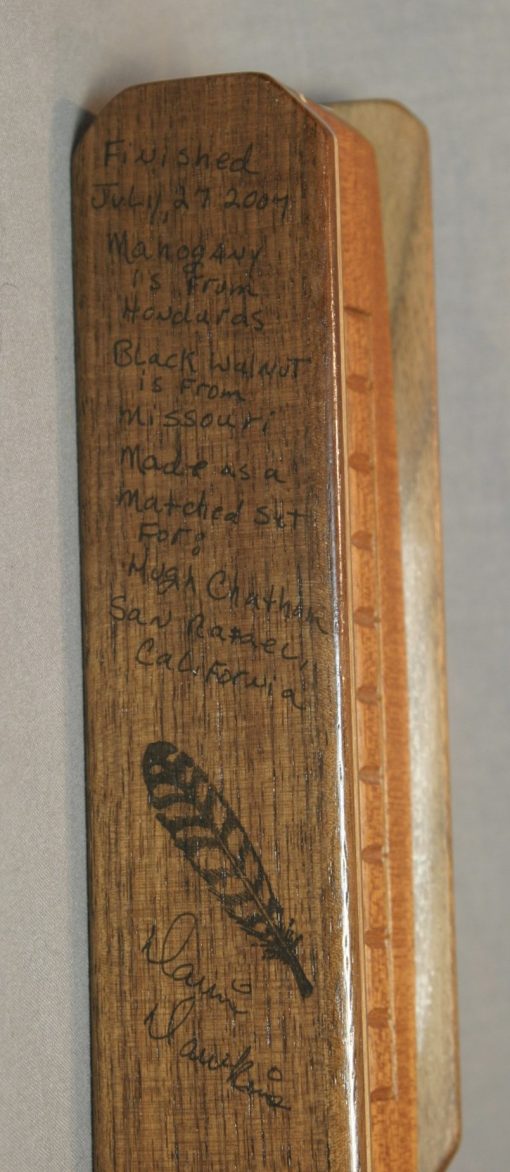 Finished
July, 27 2007
Mahogany
is From
Honduras
Black Walnut
is From
Missouri
Made as a
Matched Set
For:
Hugh Chatham
San Rafael,
California
Dawkins